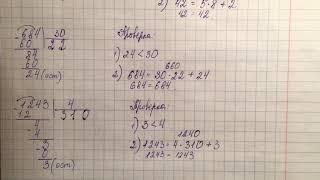 2) 42 = 5·8 + 2.
42 = 42
684 | 30
60 | 22
84
60
24 (ост)
Проверка:
1) 24 < 30
660
2) 684 = 30·22 + 24
684 = 684
1243 | 4
12 | 310
4
4
3
0
3 (ост)
Проверка:
1) 3 < 4
1240
2) 1243 = 4·310 + 3
1243 = 1243